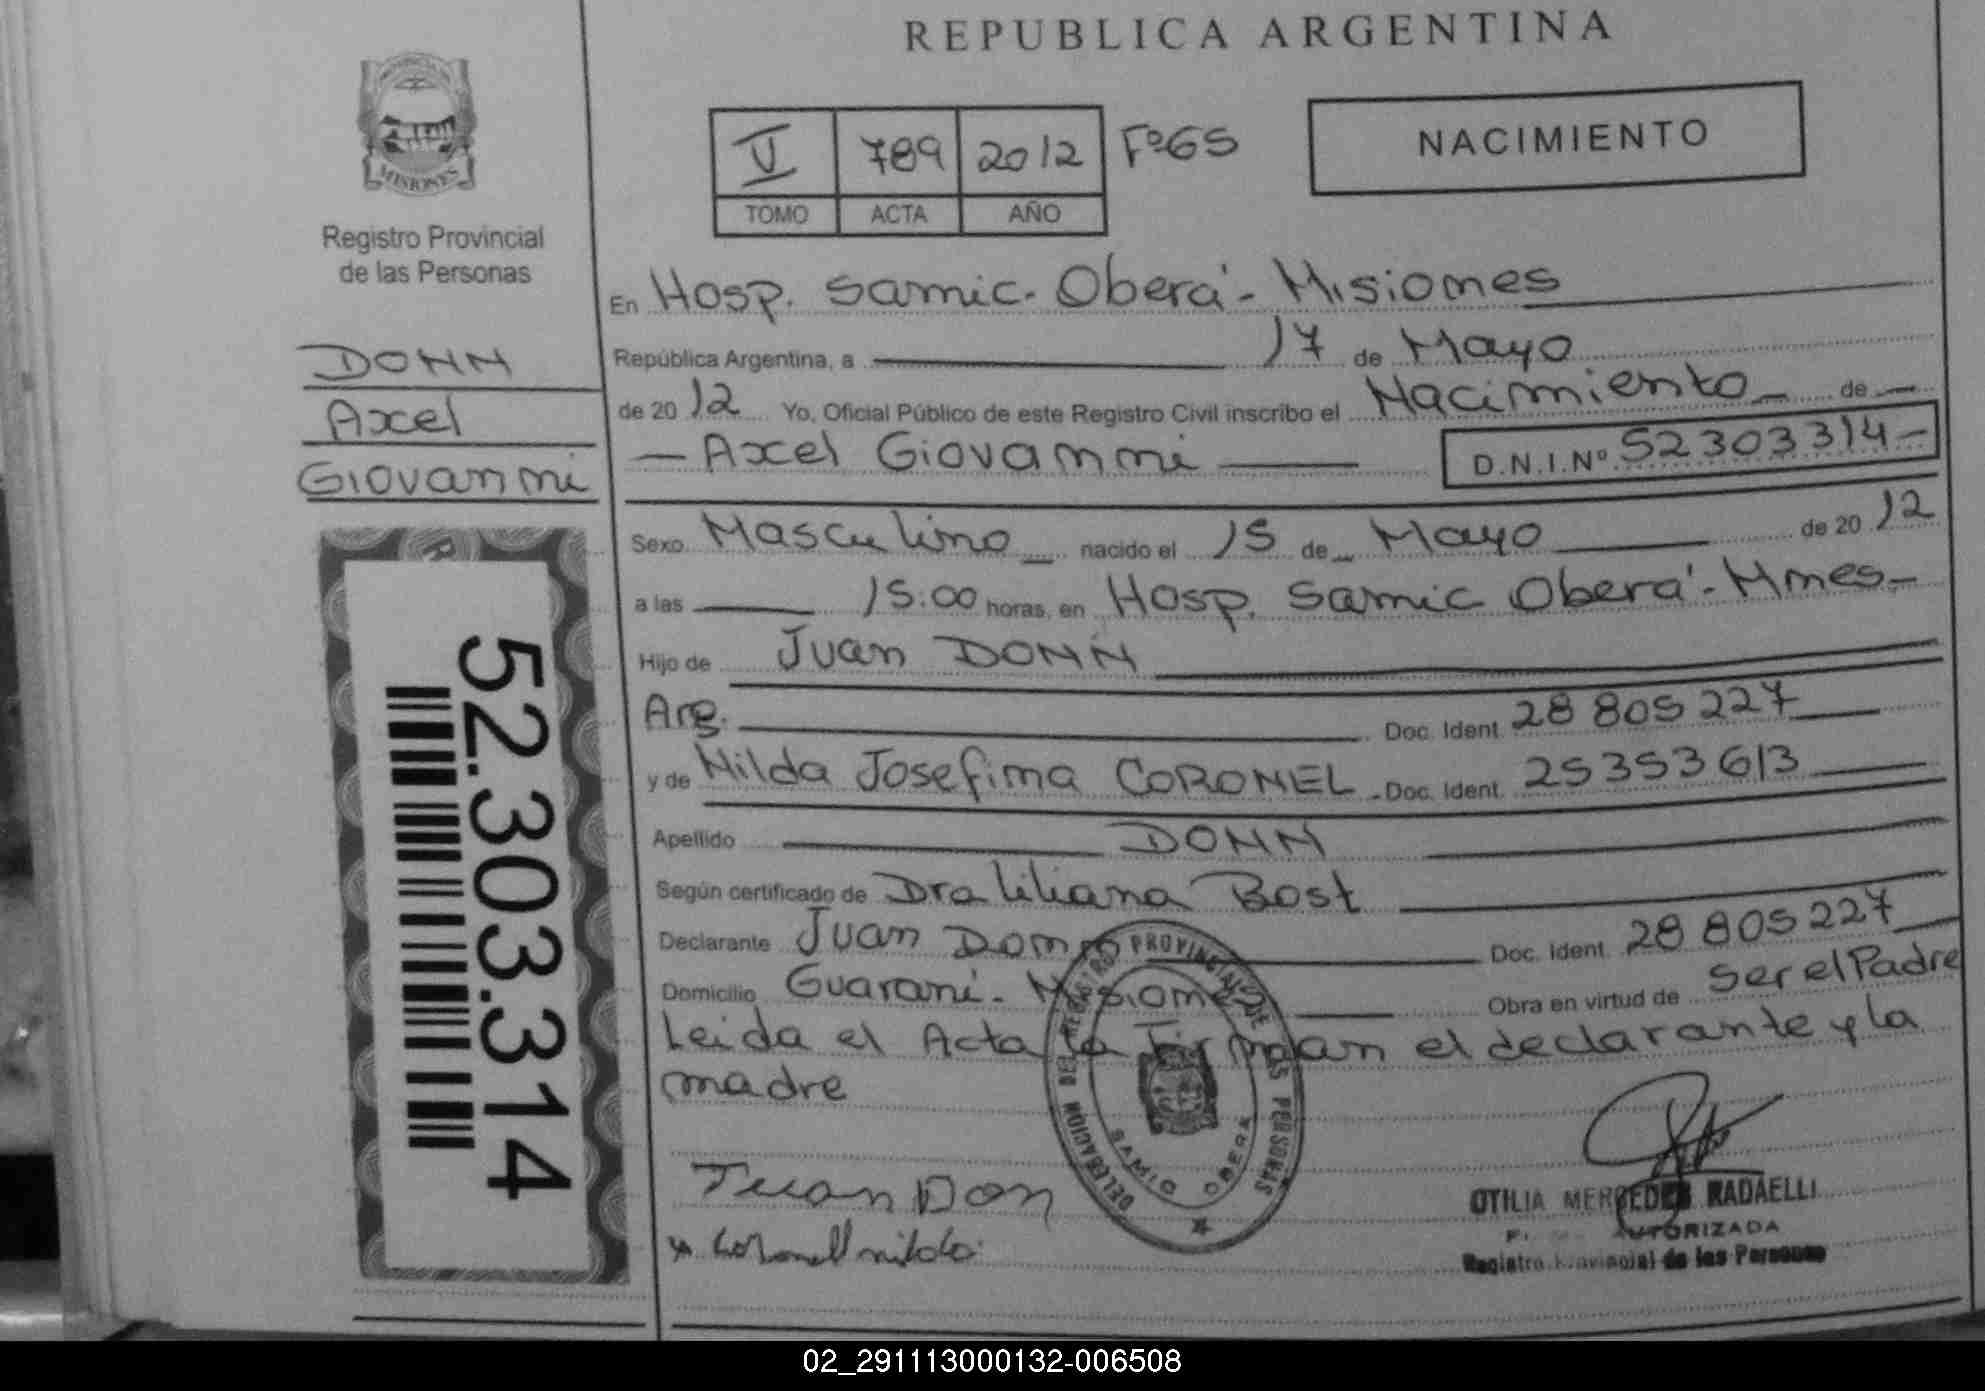 REPUBLICA ARGENTINA
PROVINCIA DE
MISIONES
Registro Provincial
de las Personas
V 789 2012 Fº65
TOMO ACTA AÑO
NACIMIENTO
DONN
Axel
Giovanni
52.303.314
En Hosp. Samic. Oberá - Misiones
República Argentina, a 17 de Mayo
de 2012 Yo, Oficial Público de este Registro Civil inscribo el Nacimiento de
Axel Giovanni D.N.I.Nº 52303314
Sexo Masculino nacido el 15 de Mayo de 2012
a las 15:00 horas, en Hosp. Samic Oberá - Mnes-
Hijo de Juan DONN
Arg. Doc. Ident. 28 805 227
y de Nilda Josefina CORONEL Doc. Ident. 25353613
Apellido DONN
Según certificado de Dra Liliana Bost
Declarante Juan Donn Doc. Ident. 28 805 227
Domicilio Guaraní - Misiones Obra en virtud de Ser el Padre
Leida el Acta la Firman el declarante y la
madre
DELEGACION DEL REGISTRO PROVINCIAL DE LAS PERSONAS
SAMIC OBERA
Juan Don
Coronel nilda
OTILIA MERCEDES RADAELLI
AUTORIZADA
Registro Provincial de las Personas
02_291113000132-006508